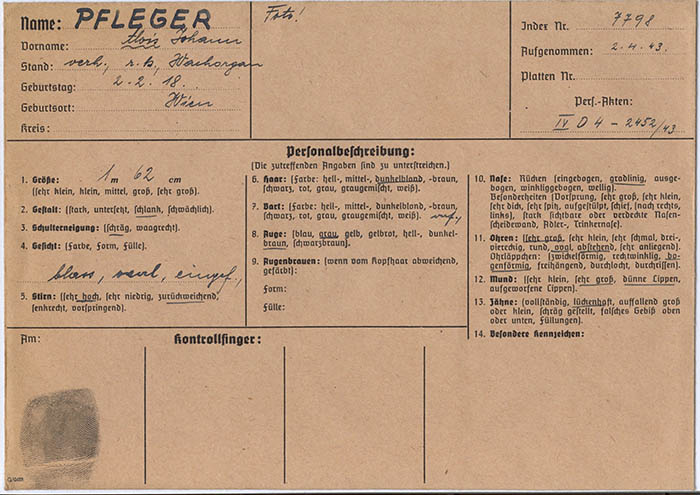 Name: PFLEGER
Vorname: Alois Johann
Stand: verh., r.k., Wachorgan
Geburtstag: 2.2.18.
Geburtsort: Wien
Kreis:
Foto!
Index Nr. 7798
Aufgenommen: 2.4.43.
Platten Nr.
Pers.-Akten:
IV D 4 - 2452/43
Personalbeschreibung:
(Die zutreffenden Angaben sind zu unterstreichen.)
1. Größe: 1 m 62 cm
(sehr klein, klein, mittel, groß, sehr groß).
2. Gestalt: (stark, untersetzt, schlank, schwächlich).
3. Schulterneigung: (schräg, waagrecht).
4. Gesicht: (Farbe, Form, Fülle).
blass, oval, eingef.,
5. Stirn: (sehr hoch, sehr niedrig, zurückweichend,
senkrecht, vorspringend).
6. Haar: (Farbe: hell-, mittel-, dunkelblond, -braun,
schwarz, rot, grau, graugemischt, weiß).
7. Bart: (Farbe: hell-, mittel-, dunkelblond, -braun,
schwarz, rot, grau, graugemischt, weiß).
8. Auge: (blau, grau, gelb, gelbrot, hell-, dunkel-
braun, schwarzbraun).
9. Augenbrauen: (wenn vom Kopfhaar abweichend,
gefärbt):
Form:
Fülle:
10. Nase: Rücken (eingebogen, gradlinig, ausge-
bogen, winkliggebogen, wellig).
Besonderheiten (Vorsprung, sehr groß, sehr klein,
sehr dick, sehr spitz, aufgestülpt, schief, (nach rechts,
links), stark sichtbare oder verdeckte Nasen-
scheidewand, Adler-, Trinkernase).
11. Ohren: (sehr groß, sehr klein, sehr schmal, drei-,
viereckig, rund, oval, abstehend, sehr anliegend).
Ohrläppchen: (zwickelförmig, rechtwinklig, bo-
genförmig, freihängend, durchlocht, durchrissen).
12. Mund: (sehr klein, sehr groß, dünne Lippen,
aufgeworfene Lippen).
13. Zähne: (vollständig, lückenhaft, auffallend groß
oder klein, schräg gestellt, falsches Gebiß oben
oder unten, Füllungen).
14. Besondere Kennzeichen:
Am:
Kontrollfinger: